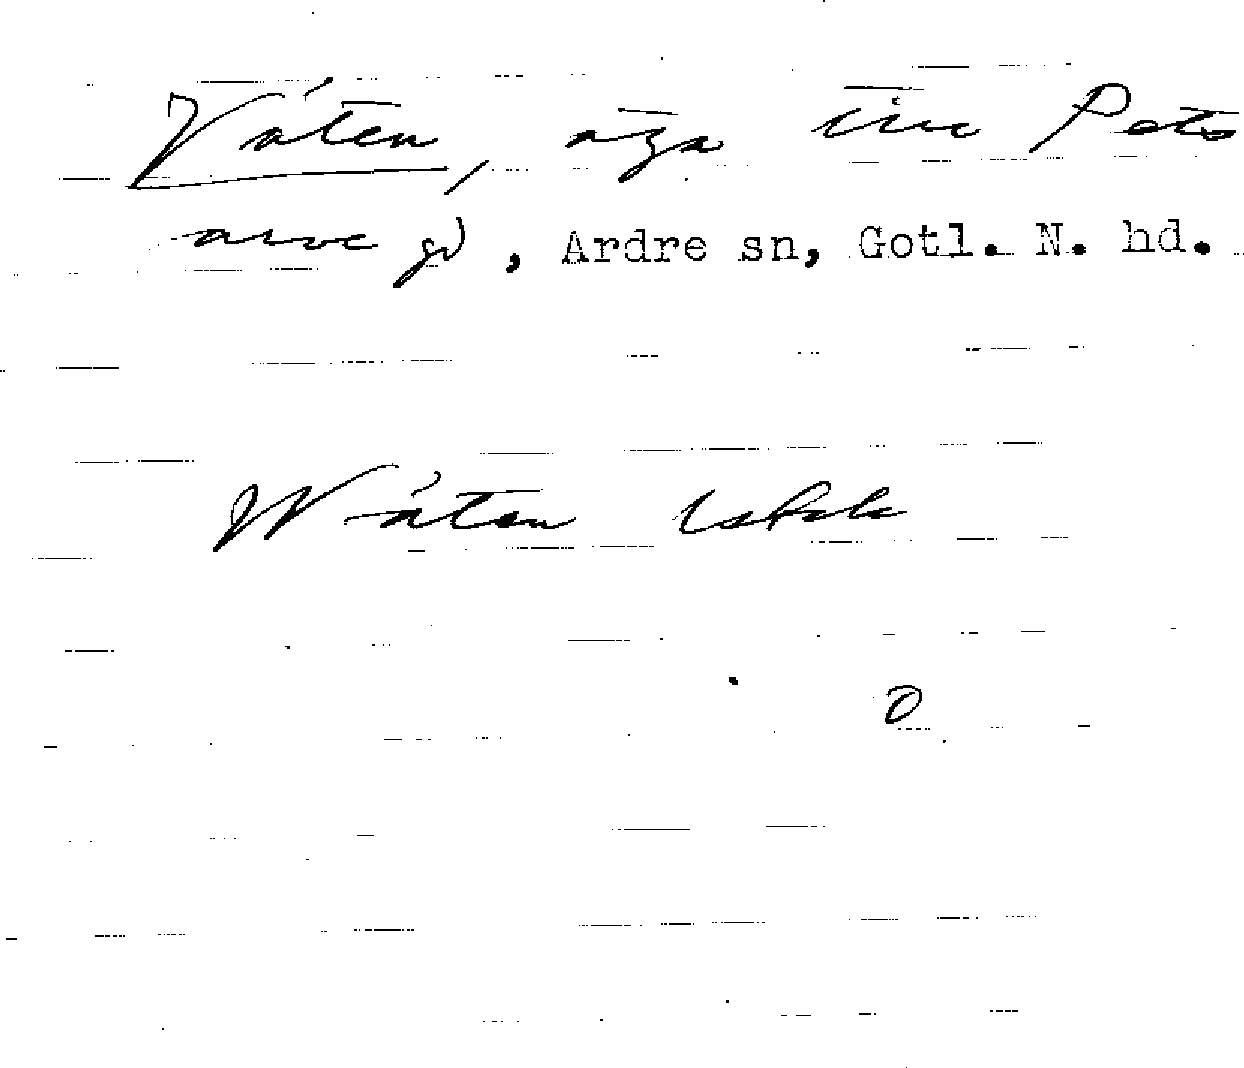 Våten, äga till Pets
arve gd, Ardre sn, Gotl. N. hd.
Wåten
0